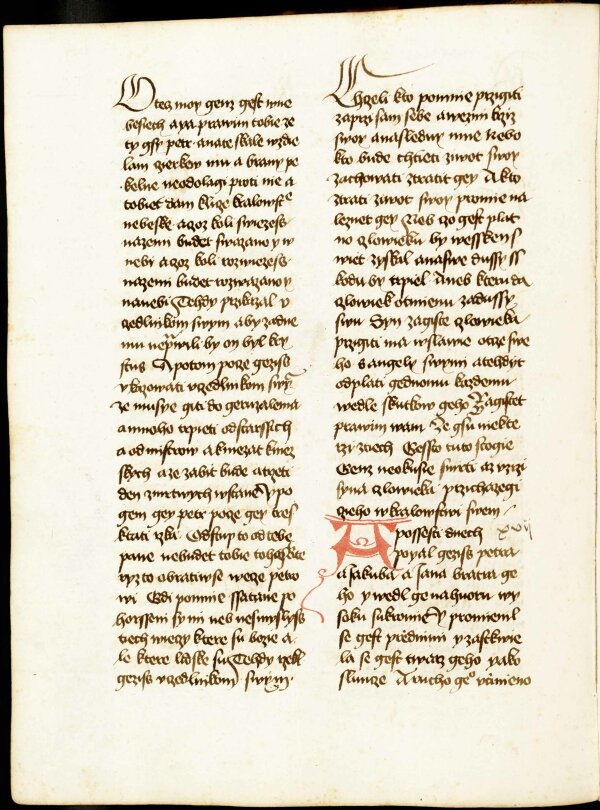 Otez moy genz gest nme
besiech a ya prawim tobie ze
ty gsy petr a na te skale vzdie
lam zierkew mu a brany pe
kelne neodolagi proti nie a
tobiet dam klize kralowstᵉ
nebeske a zoz koli swiezess
na zemi budet swazano y w
nebi a zoz koli rozwiezess
na zemi budet rozwazano y
na nebi Tehdy przikazal v
zedlnikom swym aby zadne
mu neprawili by on byl kry
stus A potom poze gezissⁱ
vkazowati vzedlnikom swy
ze musy e giti do geruzalema
a mnoho trpieti od starssich
a od mistrow a kniezat kniez
skych a ze zabit bude a trzeti
den z mrtwych wstane Y po
gem gey petr poze gey tres
ktati rzka Odstup to od tebe
pane nebudet tobie toho gʰte
ryz to obratiw se wieze petro
wi Gdi po mnie ssatane po
horssenis y mi neb nesmyslyss
tiech wieczy ktere su bozie a
le ktere lidske su Tehdy rzekl
geziss vzedlnikom swym
Chzeli kto po mnie przigiti
zaprzi sam sebe a wezmi krziz
swoy a nasleduy mne Nebo
kto bude chtieti ziwot swoy
zachowati ztratit gey A kto
ztrati ziwot swoy pro mie na
lezne t gey Neb zo gest plat
no zlowieku by wessken s
wiet zyskal a na swe dussy ss
kodu by trpiel Aneb kteru da
zlowiek otmienu za dussy
swu Syn zagiste zlowieka
przigiti ma w slawie otze swe
ho s angely swymi a tehdyt
odplati gednomu kazdemu
wedle skutkow geho Zagistet
prawim wam Ze gsu niekte
rzi z tiech Gessto tuto stogie
Genz neokusie smrti az vzrzi
syna zlowieka przichazegi
zieho w kralowstwi swem
A po ssesti dnech xvij
poyal geziss petra
a Jakuba a Jana bratra ge
ho y wedl ge na huoru wy
soku sukromie Y promienil
se gest przed nimi y zastkwie
la se gest twarz geho yako
slunze A rucho geᵒ vczinieno